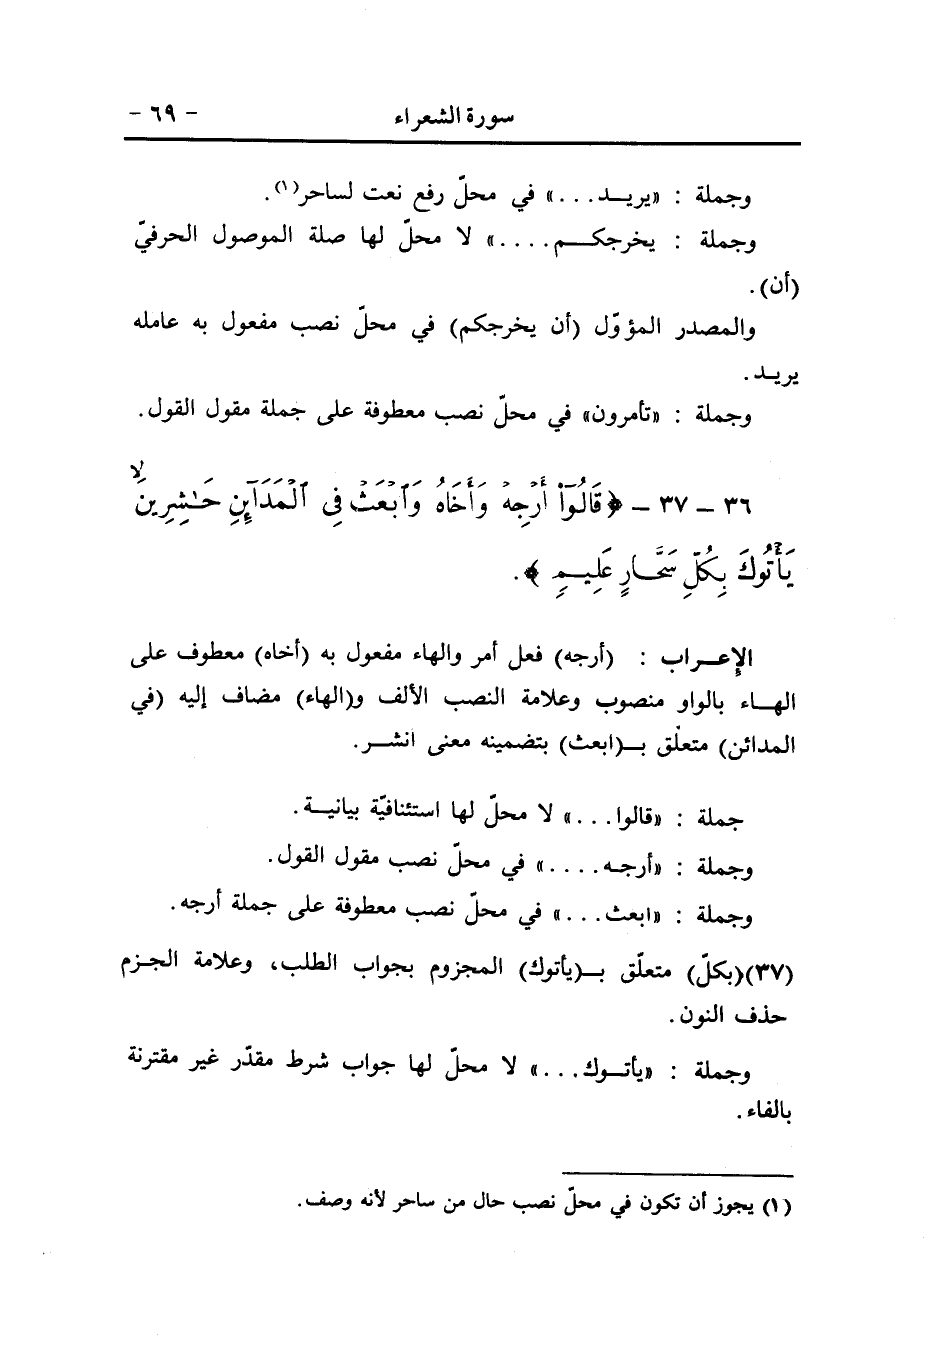 سورة الشعراء - ٦٩ -
وجملة : «يريـد. . .» في محلّ رفع نعت لساحر(١).
وجملة : يخرجكـــم. . . .» لا محلّ لها صلة الموصول الحرفيّ
(أن).
والمصدر المؤوّل (أن يخرجكم) في محلّ نصب مفعول به عامله
يريـد.
وجملة : «تأمرون» في محلّ نصب معطوفة على جملة مقول القول.
٣٦ – ٣٧ – ﴿ قَالُوٓا۟ أَرْجِهْ وَأَخَاهُ وَٱبْعَثْ فِى ٱلْمَدَآئِنِ حَـٰشِرِينَ ۙ
يَأْتُوكَ بِكُلِّ سَحَّارٍ عَلِيمٍ ﴾.
الإعـراب : (أرجه) فعل أمر والهاء مفعول به (أخاه) معطوف على
الهـاء بالواو منصوب وعلامة النصب الألف و(الهاء) مضاف إليه (في
المدائن) متعلّق بـ(ابعث) بتضمينه معنى انشـر.
جملة : «قالوا. . .» لا محلّ لها استئنافيّة بيانيـة.
وجملة : «أرجـه. . . .» في محلّ نصب مقول القول.
وجملة : «ابعث. . .» في محلّ نصب معطوفة على جملة أرجه.
(٣٧)(بكلّ) متعلّق بـ(يأتوك) المجزوم بجواب الطلب، وعلامة الجـزم
حذف النون.
وجملة : «يأتـوك. . .» لا محلّ لها جواب شرط مقدّر غير مقترنة
بالفاء.
(١) يجوز أن تكون في محلّ نصب حال من ساحر لأنه وصف.